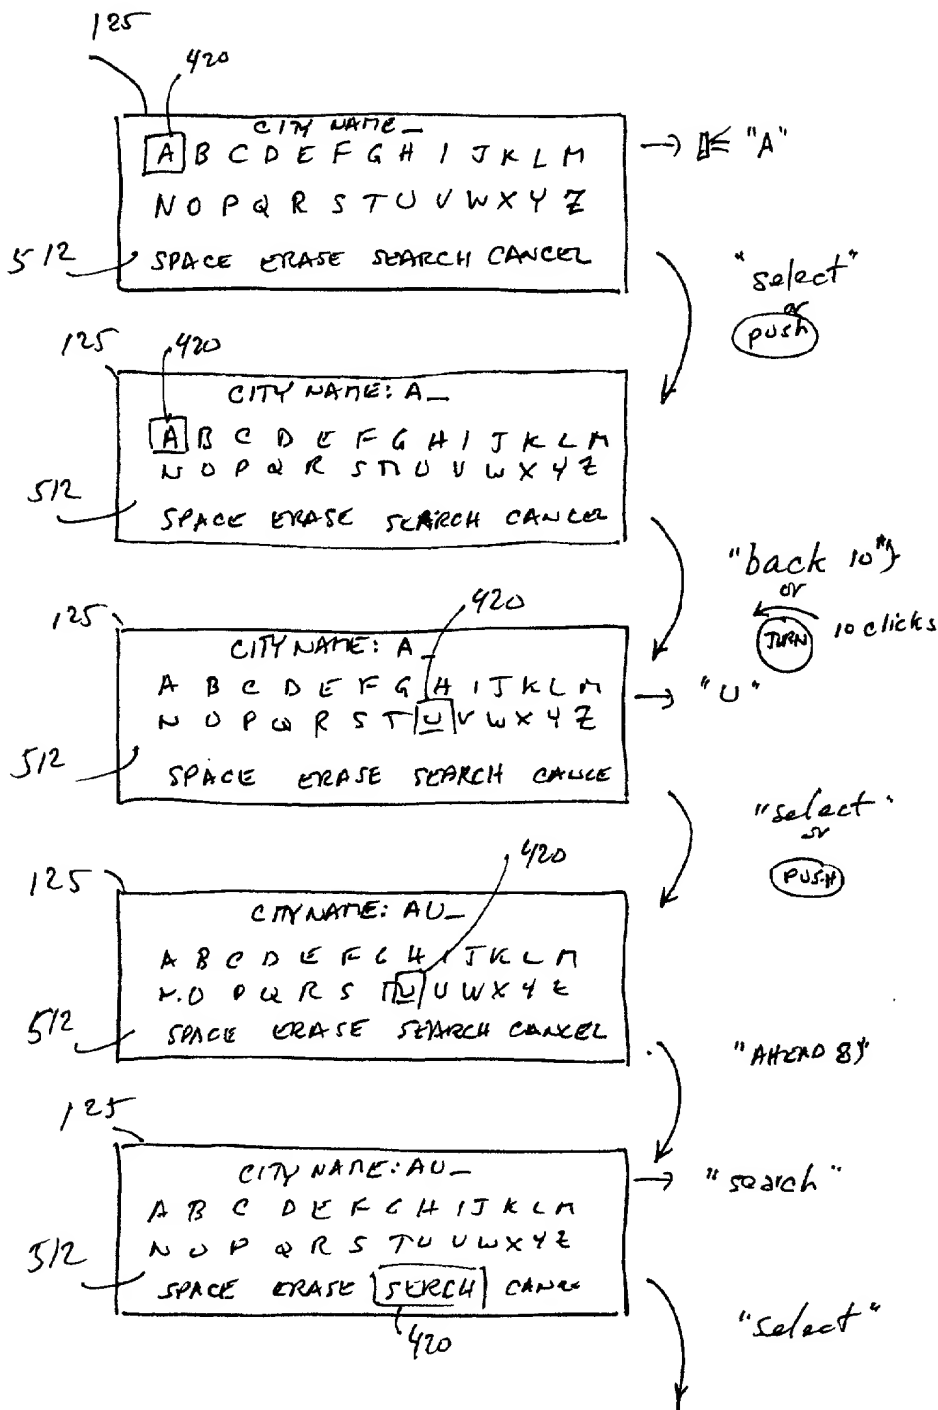 125
420
CITY NAME _
A B C D E F G H I J K L M
N O P Q R S T U V W X Y Z
512
SPACE ERASE SEARCH CANCEL
→ "A"
"select"
or
push
125
420
CITY NAME: A_
A B C D E F G H I J K L M
N O P Q R S T U V W X Y Z
512
SPACE ERASE SEARCH CANCEL
"back 10"
or
TURN 10 clicks
125
420
CITY NAME: A_
A B C D E F G H I J K L M
N O P Q R S T U V W X Y Z
→ "U"
512
SPACE ERASE SEARCH CANCE
"select"
or
PUSH
125
420
CITY NAME: AU_
A B C D E F G H I J K L M
N O P Q R S T U V W X Y Z
512
SPACE ERASE SEARCH CANCEL
"AHEAD 8"
125
CITY NAME: AU_
A B C D E F G H I J K L M
N O P Q R S T U V W X Y Z
→ "search"
512
SPACE ERASE SERCH CANCE
420
"select"